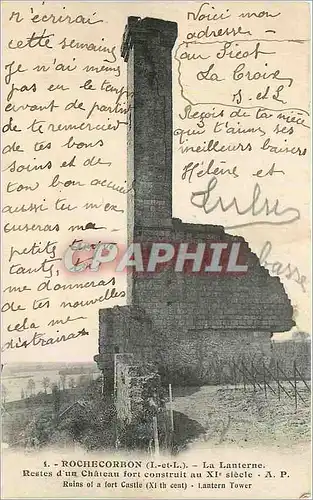 n'écrirai
cette semaine
Je n'ai même
pas eu le temps
avant de partir
de te remercier
de tes bons
soins et de
ton bon accueil
aussi tu m'ex
cuseras ma
petite
tante,
me donneras
de tes nouvelles
cela me
distrairait
Voici mon
adresse —
au Picot
La Croix
I. et L.
Reçois de ta nièce
que t'aime ses
meilleurs baisers
Hélène et
Lulu
CPARPHIL
1. - ROCHECORBON (I.-et-L.). - La Lanterne.
Restes d'un Château fort construit au XIe siècle - A. P.
Ruins of a fort Castle (XI th cent) - Lantern Tower